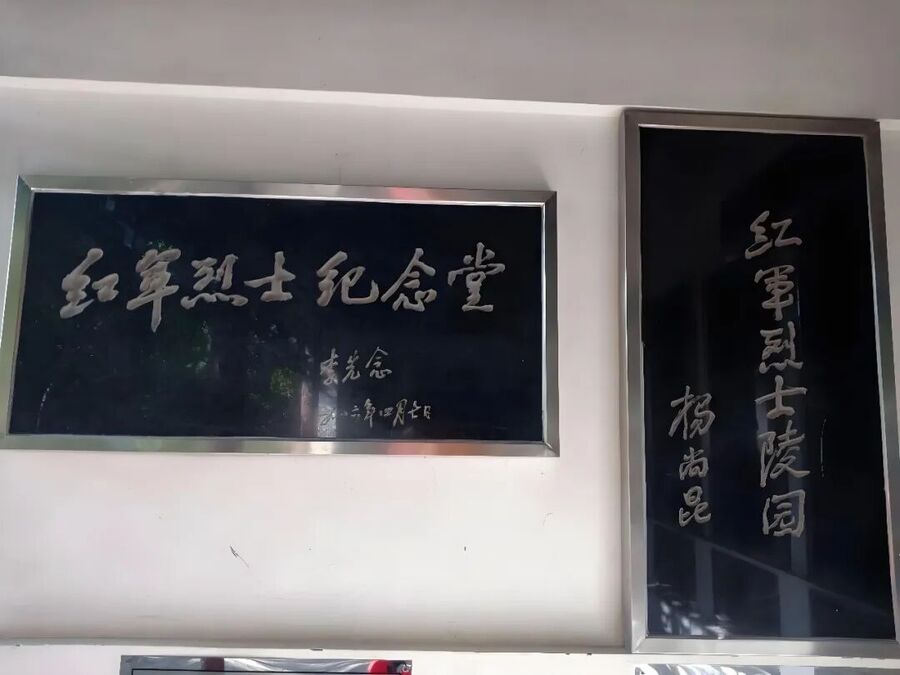 红军烈士纪念堂
李先念
一九八六年四月七日
红軍烈士陵园
杨尚昆